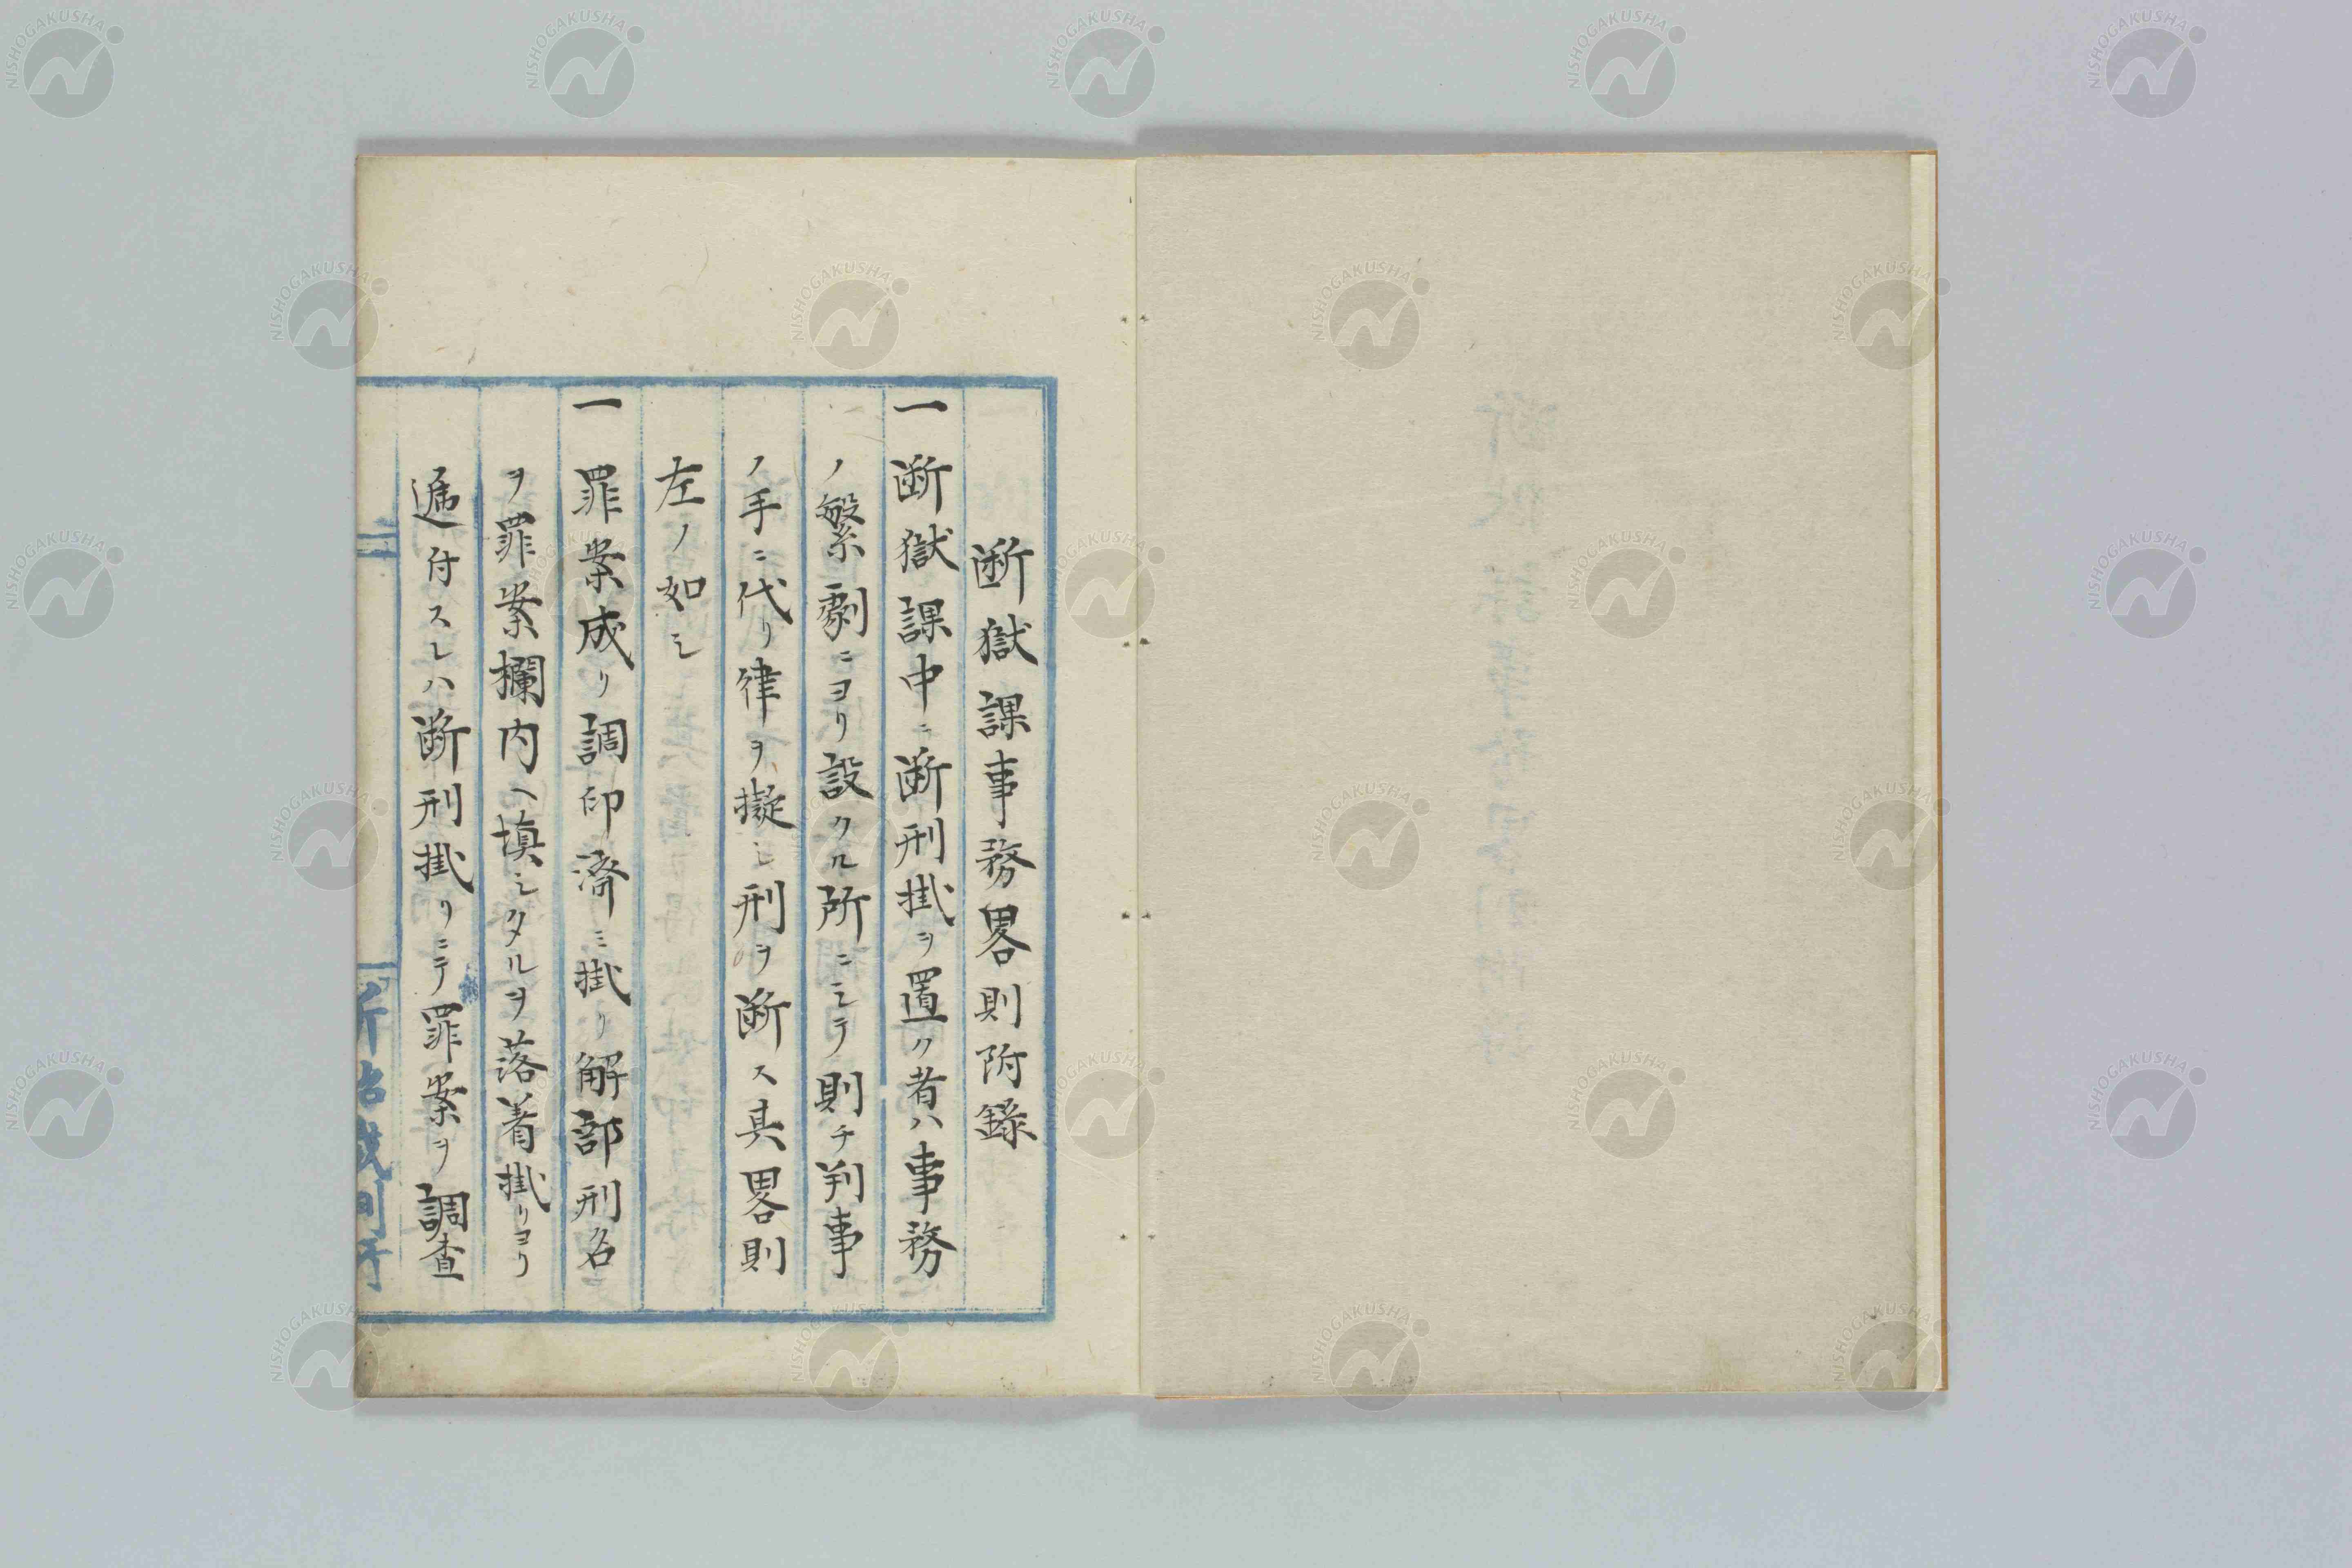 断獄課事務畧則附録
一断獄課中ニ断刑掛ヲ置ク者ハ事務
ノ繁劇ニヨリ設クル所ニシテ則チ判事
ノ手ニ代リ律ヲ擬シ刑ヲ断ス其畧則
左ノ如シ
一罪案成リ調印済ミ掛リ解部刑名
ヲ罪案欄内ヘ填シタルヲ落着掛リヨリ
逓付スレハ断刑掛リニテ罪案ヲ調査
NISHOGAKUSHA